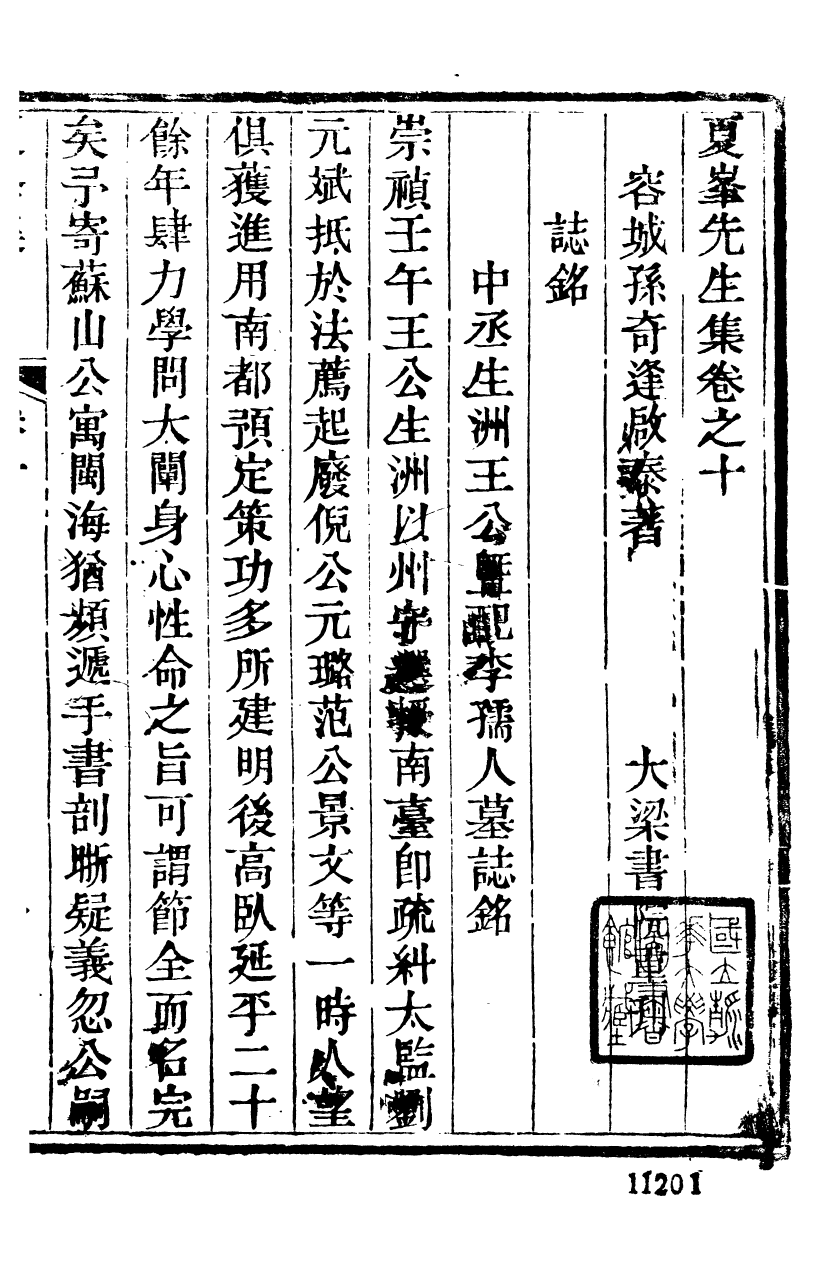 夏峯先生集卷之十
容城孫奇逢啟泰著 大梁書院重
誌銘
中丞生洲王公暨配李孺人墓誌銘
崇禎壬午王公生洲以州守選授南臺卽疏糾太監劉
元斌抵於法薦起廢倪公元璐范公景文等一時人望
俱獲進用南都預定策功多所建明後高臥延平二十
餘年肆力學問大闡身心性命之旨可謂節全而名完
矣予寄蘇山公寓閩海猶頻遞手書剖晰疑義忽公嗣
11201